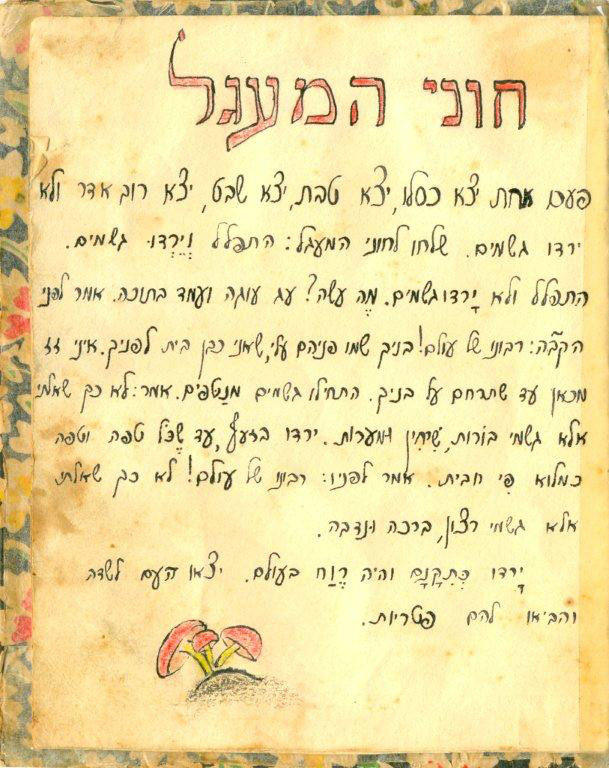 חוני המעגל
פעם אחת יצא כסלו, יצא טבת, יצא שבט, יצא רוב אדר ולא
ירדו גשמים. שלחו לחוני המעגל: התפלל וְיֵרְדוּ גשמים.
התפלל ולא יָרדו גשמים. מֶה עשה? עג עוגה ועמד בתוכה. אמר לפני
הקבּ״ה: רבונו של עולם! בניך שמו פניהם עלי, שאני כבן בית לפניך. איני זז
מכאן עד שתרחם על בניך. התחילו גשמים מנַטפים. אמר: לא כך שאלתי
אלא גשמי בּוֹרות, שִׁיחִין וּמערות. ירדו בזעף, עד שֶׁכֹּל טפה וטפה
כמלוא פִּי חבית. אמר לפניו: רבונו של עולם! לא כך שאלתי
אלא גשמי רצון, ברכה וּנדבה.
יָרדו כְּתִקְנָם והיה רֶוַח בעולם. יצאו העם לשדה
והביאו להם פטריות.